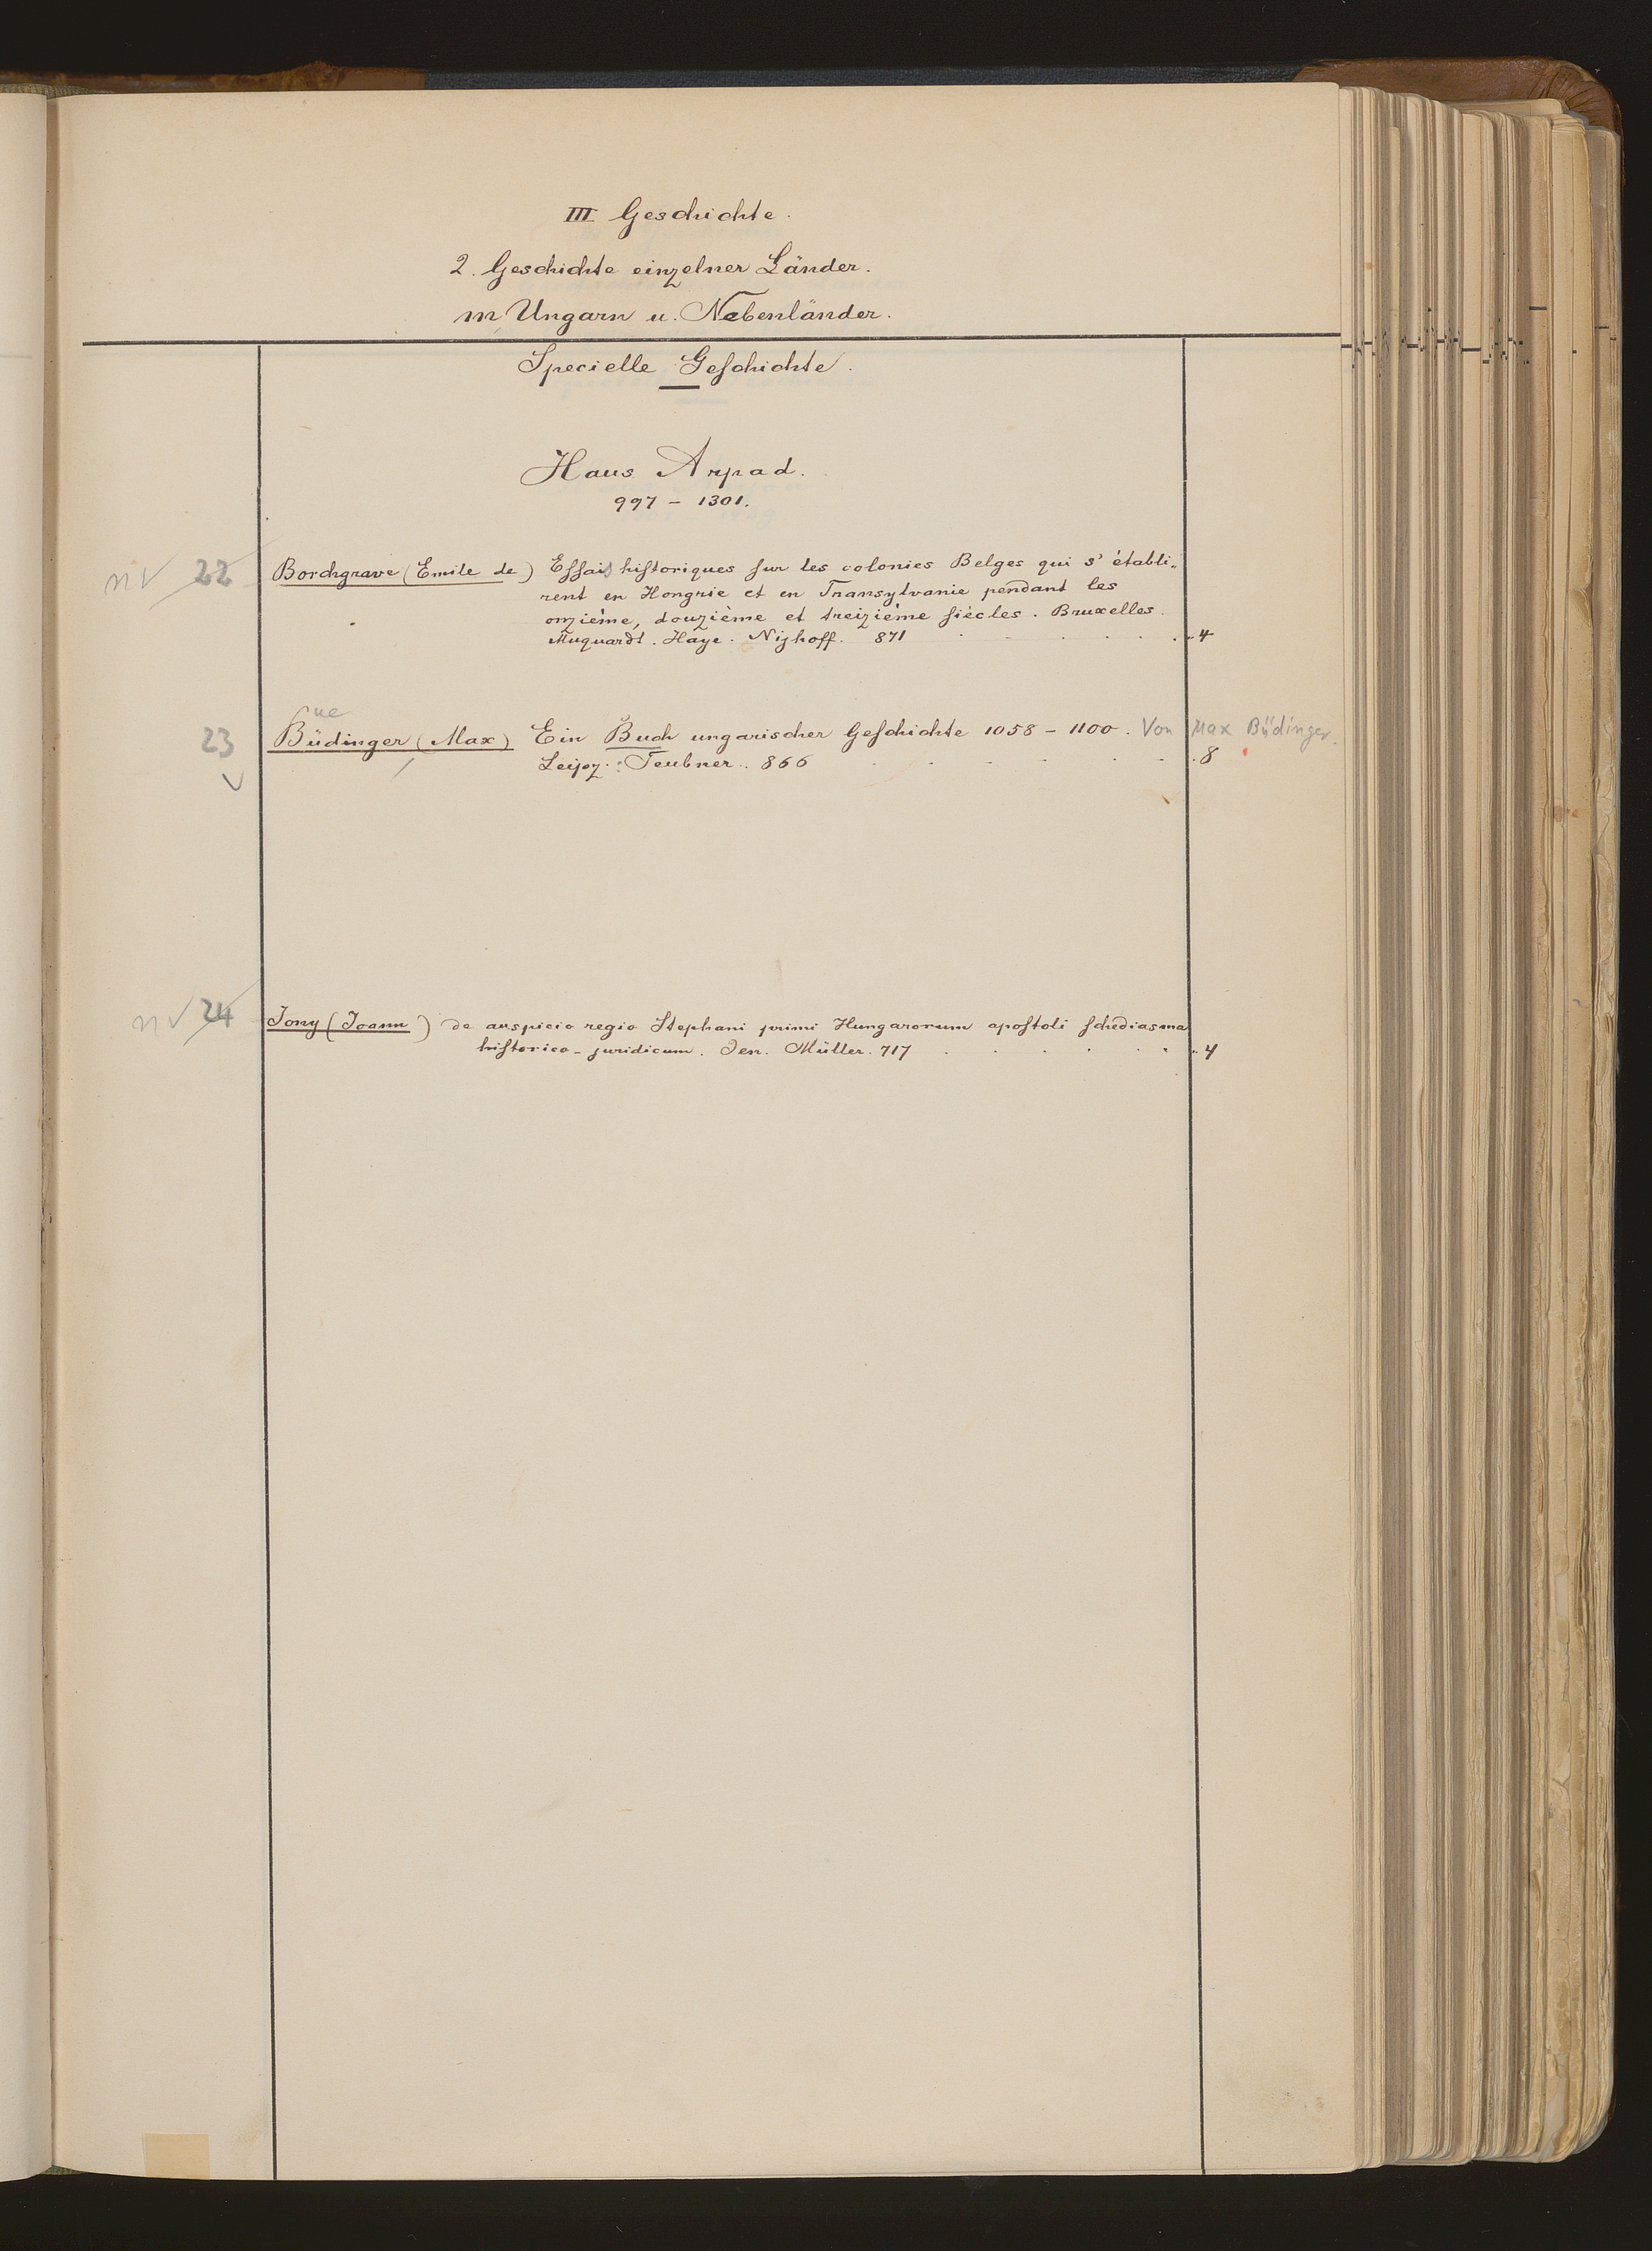 III Geschichte.
2. Geschichte einzelner Länder.
m, Ungarn u. Nebenländer.
Specielle Geſchichte.
Haus Arpad.
997 – 1301.
n v 22 Borchgrave (Emile de) Eſſais hiſtoriques ſur les colonies Belges qui s'établi„
rent en Hongrie et en Transylvanie pendant les
onzième, douzième et treizième ſiècles. Bruxelles.
Muquardt. Haye. Nijhoff. 871 . . . . . . 4
ue
23 Büdinger (Max) Ein Buch ungarischer Geſchichte 1058 – 1100. Von Max Büdinger.
v Leipz.: Teubner. 866 . . . . . . 8
n v 24 Jony (Joann) de auspicio regio Stephani primi Hungarorum apoſtoli ſchediasma
hiſtorico-juridicum. Jen. Müller. 717 . . . . . . 4